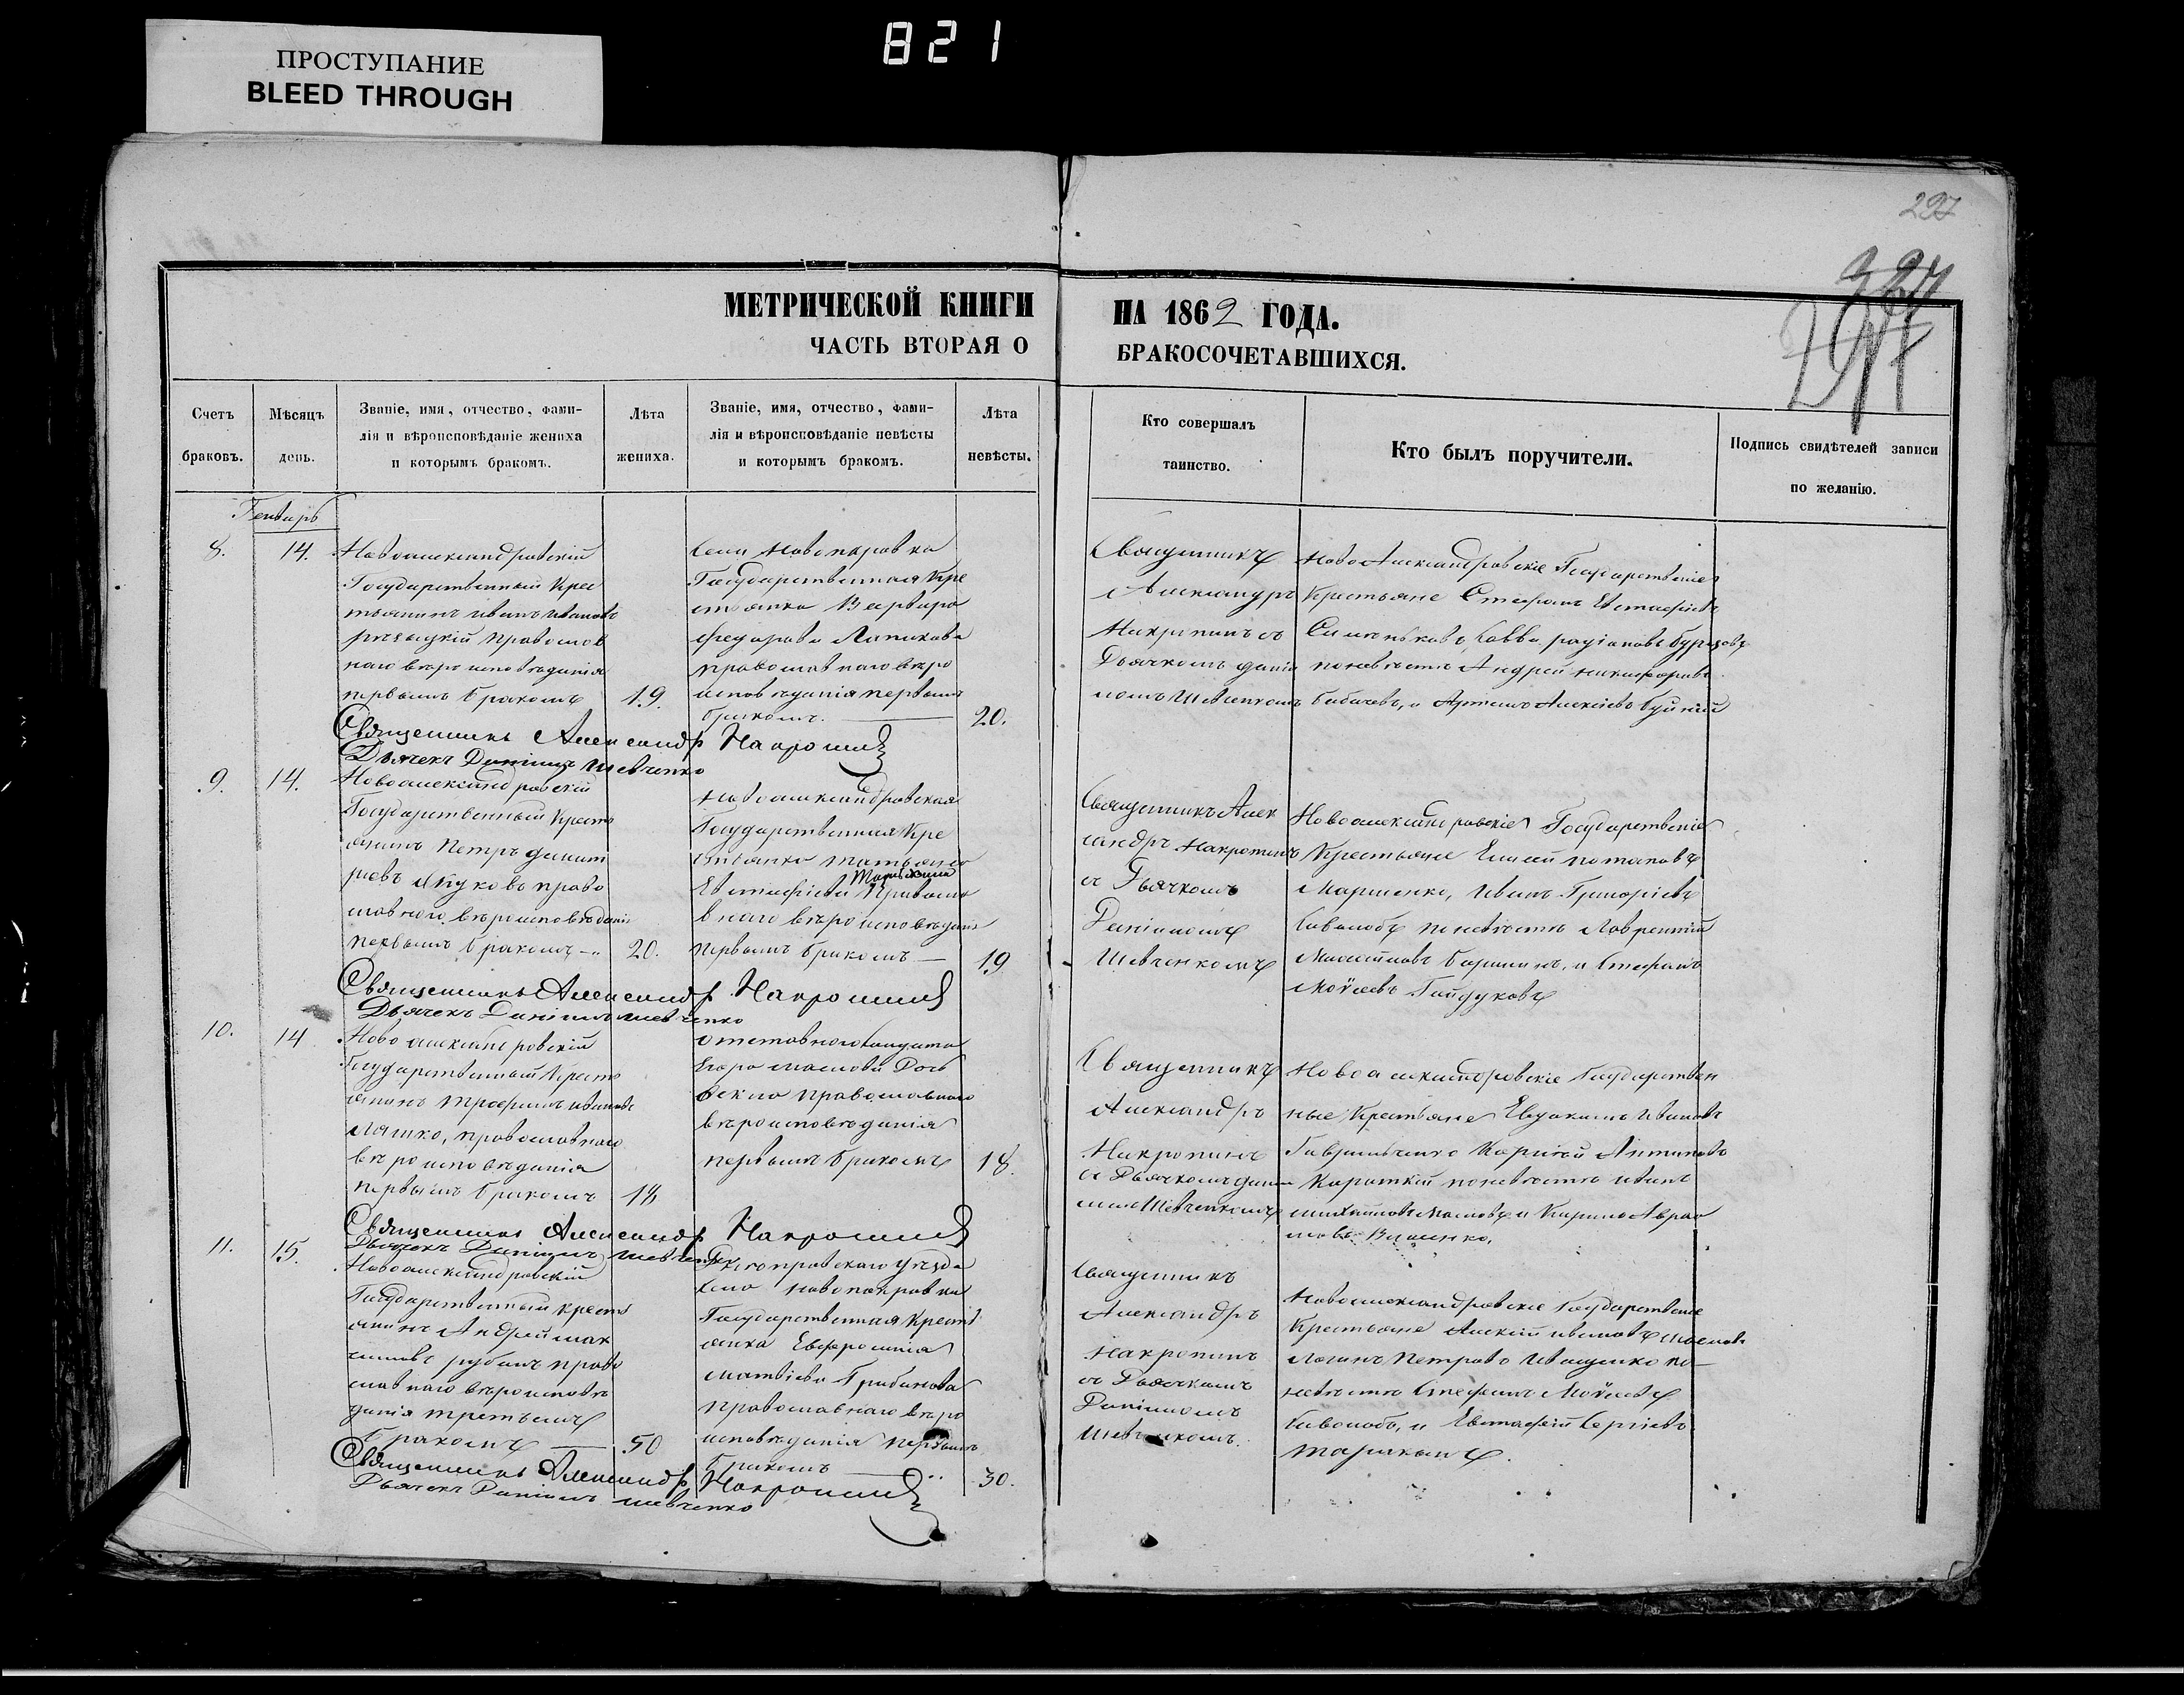 ПРОСТУПАНИЕ
BLEED THROUGH
821
297
327
МЕТРИЧЕСКОЙ КНИГИ НА 1862 ГОДА.
ЧАСТЬ ВТОРАЯ О БРАКОСОЧЕТАВШИХСЯ.
Счетъ
браковъ.
Мѣсяцъ
день.
Званіе, имя, отчество, фами-
лія и вѣроисповѣданіе жениха
и которымъ бракомъ.
Лѣта
жениха.
Званіе, имя, отчество, фами-
лія и вѣроисповѣданіе невѣсты
и которымъ бракомъ.
Лѣта
невѣсты.
Кто совершалъ
таинство.
Кто былъ поручители.
Подпись свидѣтелей записи
по желанію.
Генварь
8.
14.
Новоалександровскій
Государственный Крес
тьянинъ Иванъ Ивановъ
православ
наго вѣроисповѣданія
первымъ бракомъ
19.
Села Новопокровки
Государственная Кре
стьянка Варвара
Федорова
православнаго вѣро
исповѣданія первымъ
бракомъ.
20.
Священникъ
Александръ
Накропинъ съ
Дьячкомъ Дани
ломъ Шевченкомъ
Новоалександровскіе Государственные
Крестьяне Стефанъ Евстафіевъ
Савва
по невѣстѣ Андрей Никифоровъ
и Артемъ Алексіевъ
Священникъ Александръ Накропинъ
Дьячекъ Даніилъ Шевченко
9.
14.
Новоалександровскій
Государственный Кресть
янинъ Петръ Димит
ріевъ Жуковъ право
славнаго вѣроисповѣданія
первымъ бракомъ
20.
Новоалександровская
Государственная Кре
стьянка Татьяна
Евстафіева Православ
наго вѣроисповѣданія
первымъ бракомъ
19
Священникъ Алек
сандръ Накропинъ
съ Дьячкомъ
Даніиломъ
Шевченкомъ
Новоалександровскіе Государственные
Крестьяне Елисей Потаповъ
Марченко, Иванъ Григоріевъ
по невѣстѣ Лаврентій
и Стефанъ
Моѵсеевъ Гайдуковъ
Священникъ Александръ Накропинъ
Дьячекъ Даніилъ Шевченко
10.
14
Новоалександровскій
Государственный Кресть
янинъ Трофимъ Ивановъ
Ляшко, православнаго
вѣроисповѣданія
первымъ бракомъ
18
отставнаго солдата
православнаго
вѣроисповѣданія
первымъ бракомъ
18.
Священникъ
Александръ
Накропинъ
съ Дьячкомъ Дани
иломъ Шевченкомъ
Новоалександровскіе Государствен
ные Крестьяне Евдокимъ Ивановъ
Гавриленко Корнѣй Антиповъ
Короткій по невѣстѣ Иванъ
Михайловъ Масловъ и Кирило Авра
мовъ
Священникъ Александръ Накропинъ
Дьячекъ Даніилъ Шевченко
11.
15.
Новоалександровскій
Государственный Кресть
янинъ Андрей Мак
симовъ Рубанъ право
славнаго вѣроисповѣ
данія третьимъ
бракомъ
50
уѣзда
села Новопокровки
Государственная Кресть
янка Евфросинія
Матвѣева Грибанова
православнаго вѣро
исповѣданія первымъ
бракомъ
30.
Священникъ
Александръ
Накропинъ
съ Дьячкомъ
Даніиломъ
Шевченкомъ.
Новоалександровскіе Государственные
Крестьяне Алексій Ивановъ Масловъ
Логинъ Петровъ Иващенко по
невѣстѣ Стефанъ Моѵсеевъ
и Евстафій Сергіевъ
Тараканъ.
Священникъ Александръ Накропинъ
Дьячекъ Даніилъ Шевченко